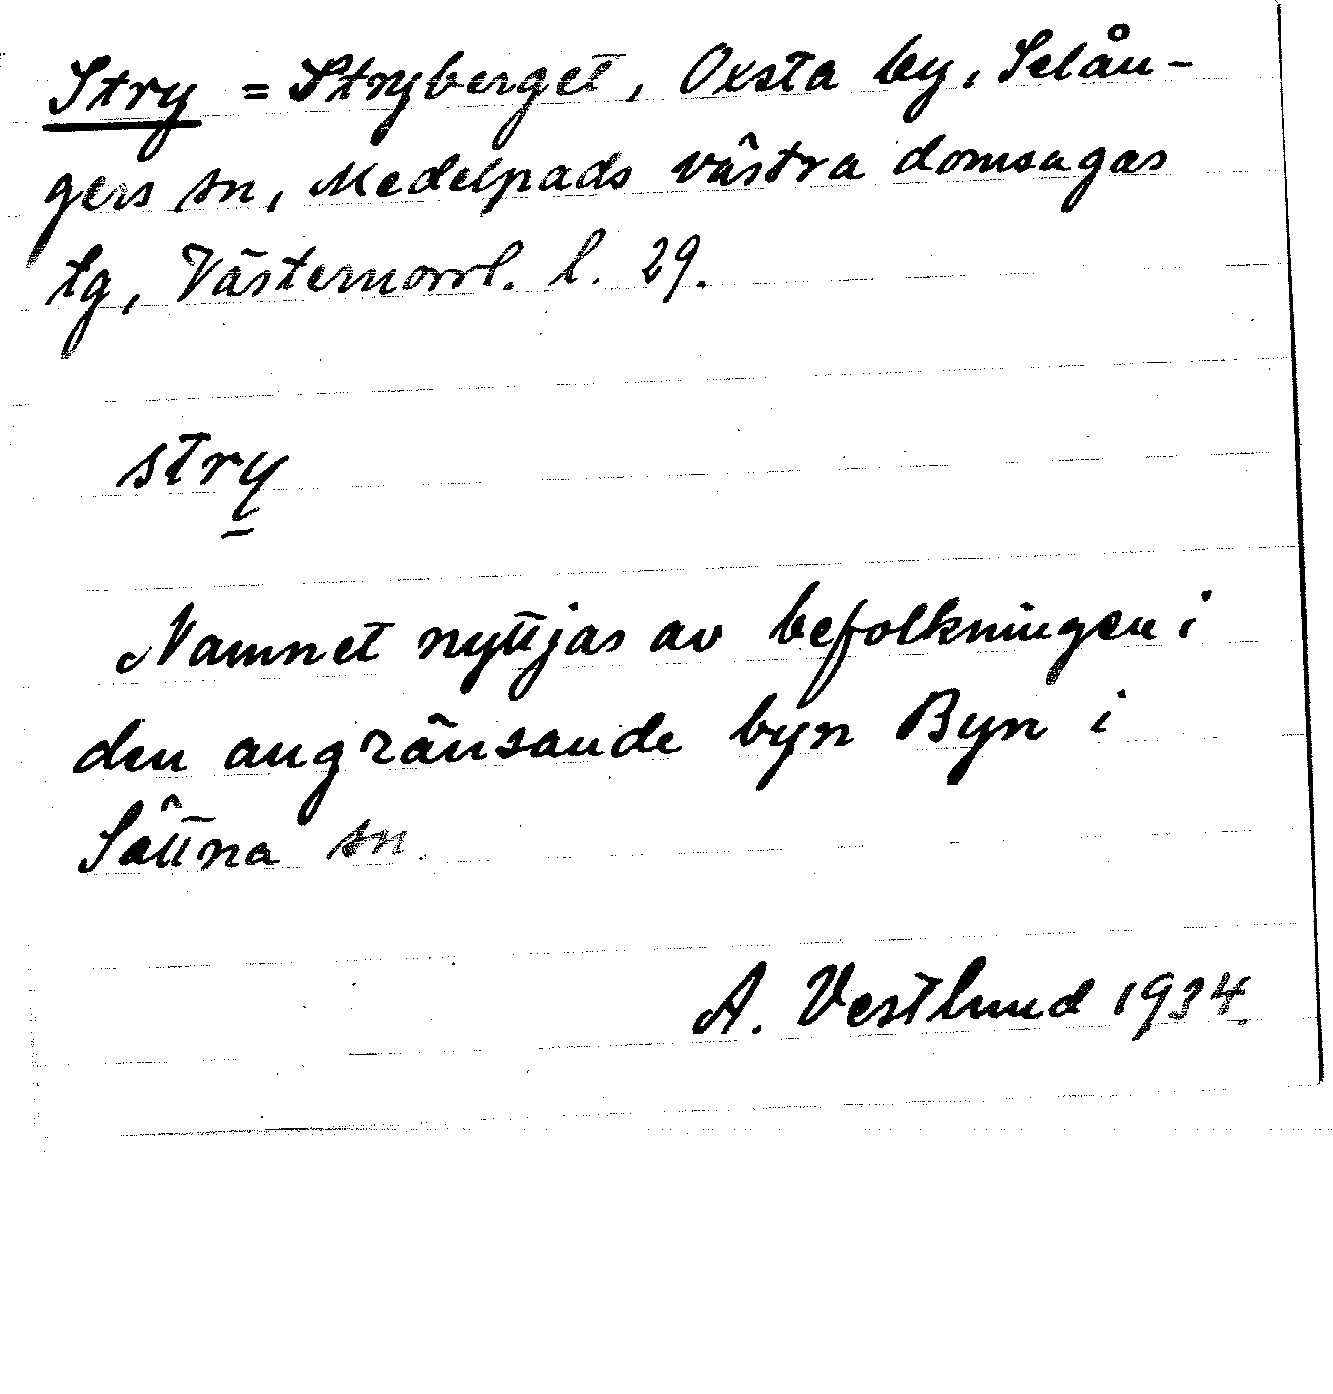 Stry = Stryberget, Oxsta by, Selån-
gers sn, Medelpads västra domsagas
tg, Västernorrl. l. 29.
stry̱
Namnet nyttjas av befolkningen i
den angränsande byn Byn i
Sättna sn.
A. Vestlund 1934.